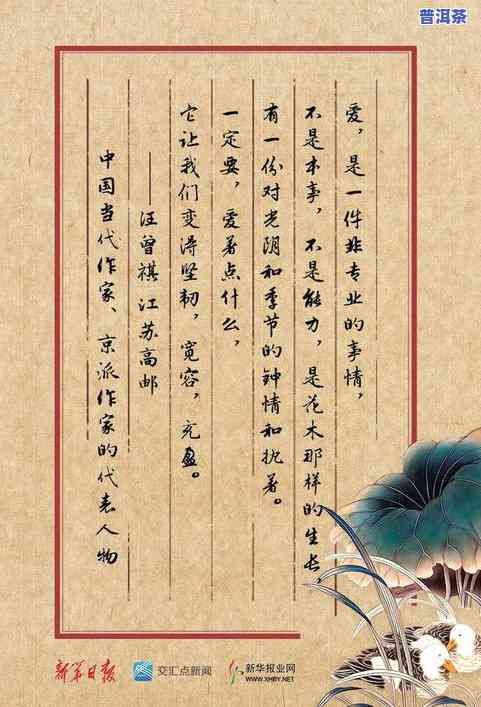 普洱茶
爱，是一件非专业的事情，
不是本事，不是能力，是花木那样的生长，
有一份对光阴和季节的钟情和执著。
一定要，爱着点什么，
它让我们变得坚韧，宽容，充盈。
——汪曾祺 江苏高邮
中国当代作家、京派作家的代表人物
新华日报
交汇点新闻
新华报业网
WWW.XHBY.NET